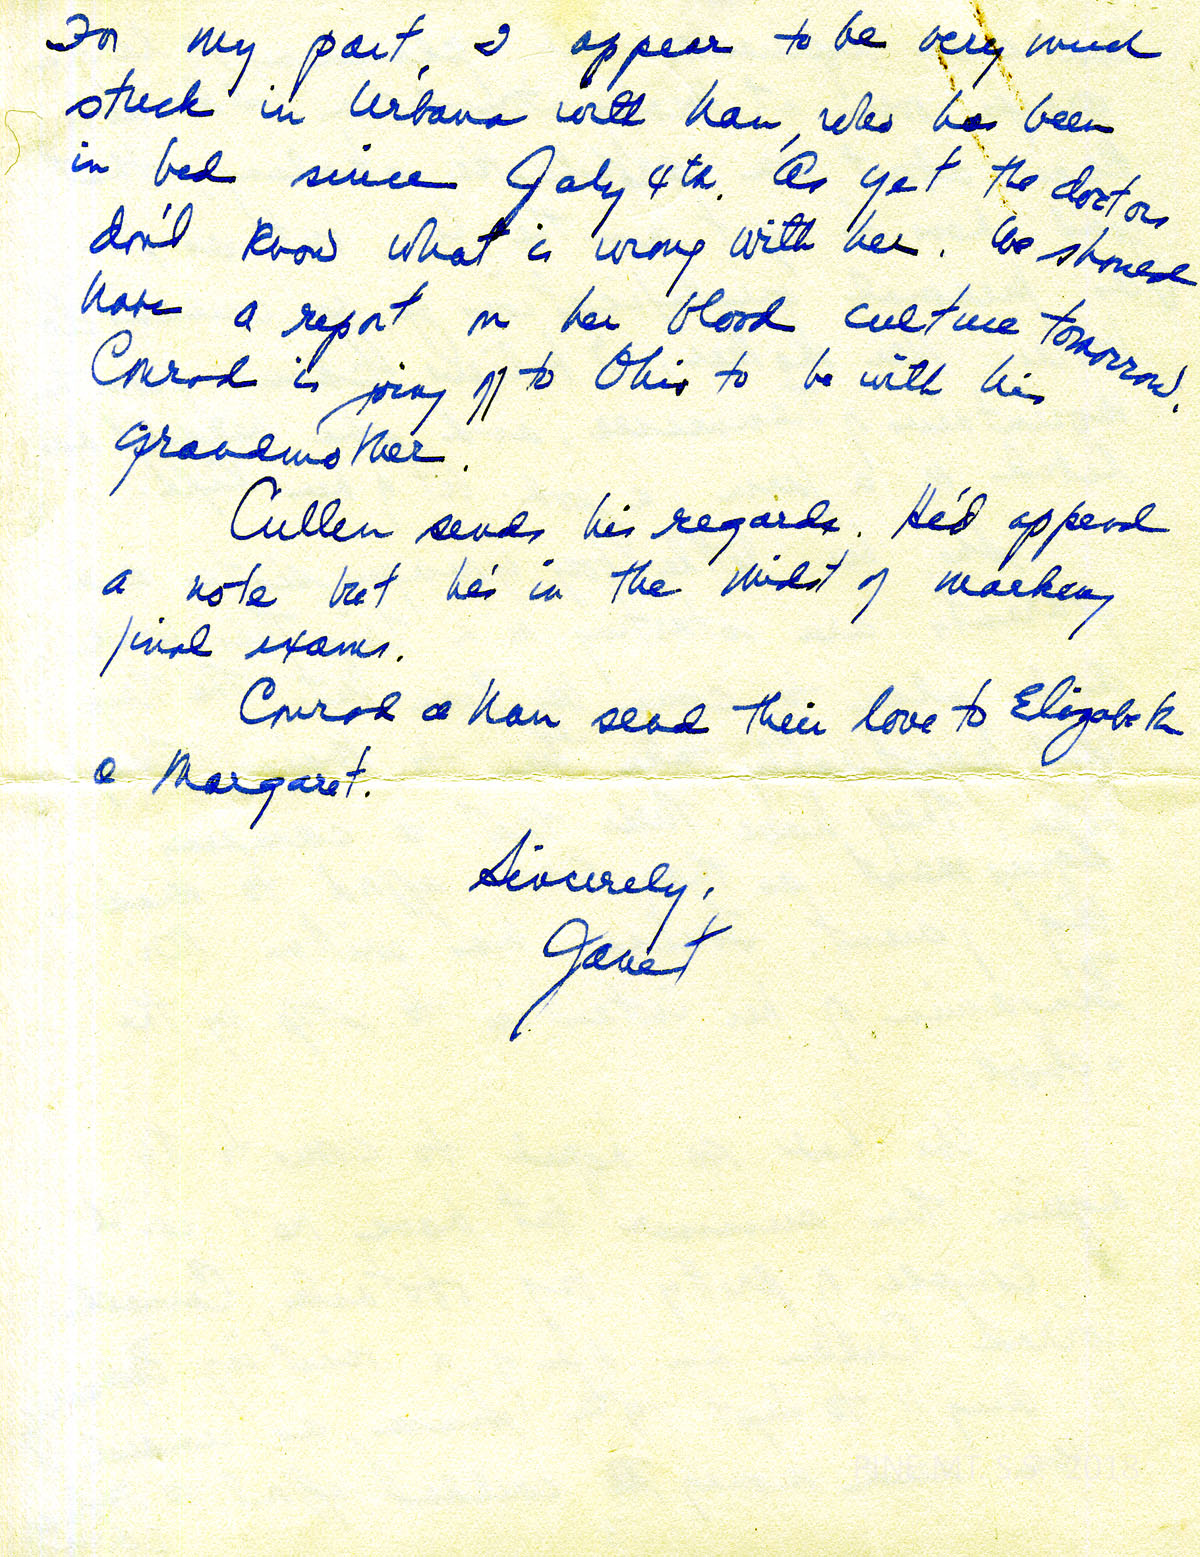 For my part, I appear to be very much
stuck in Urbana with Nan, who has been
in bed since July 4th. As yet the doctors
don't know what is wrong with her. We should
have a report on her blood culture tomorrow.
Conrad is going off to Ohio to be with his
grandmother.
Cullen sends his regards. He'd append
a note but he's in the midst of marking
final exams.
Conrad & Nan send their love to Elizabeth
& Margaret.
Sincerely,
Janet